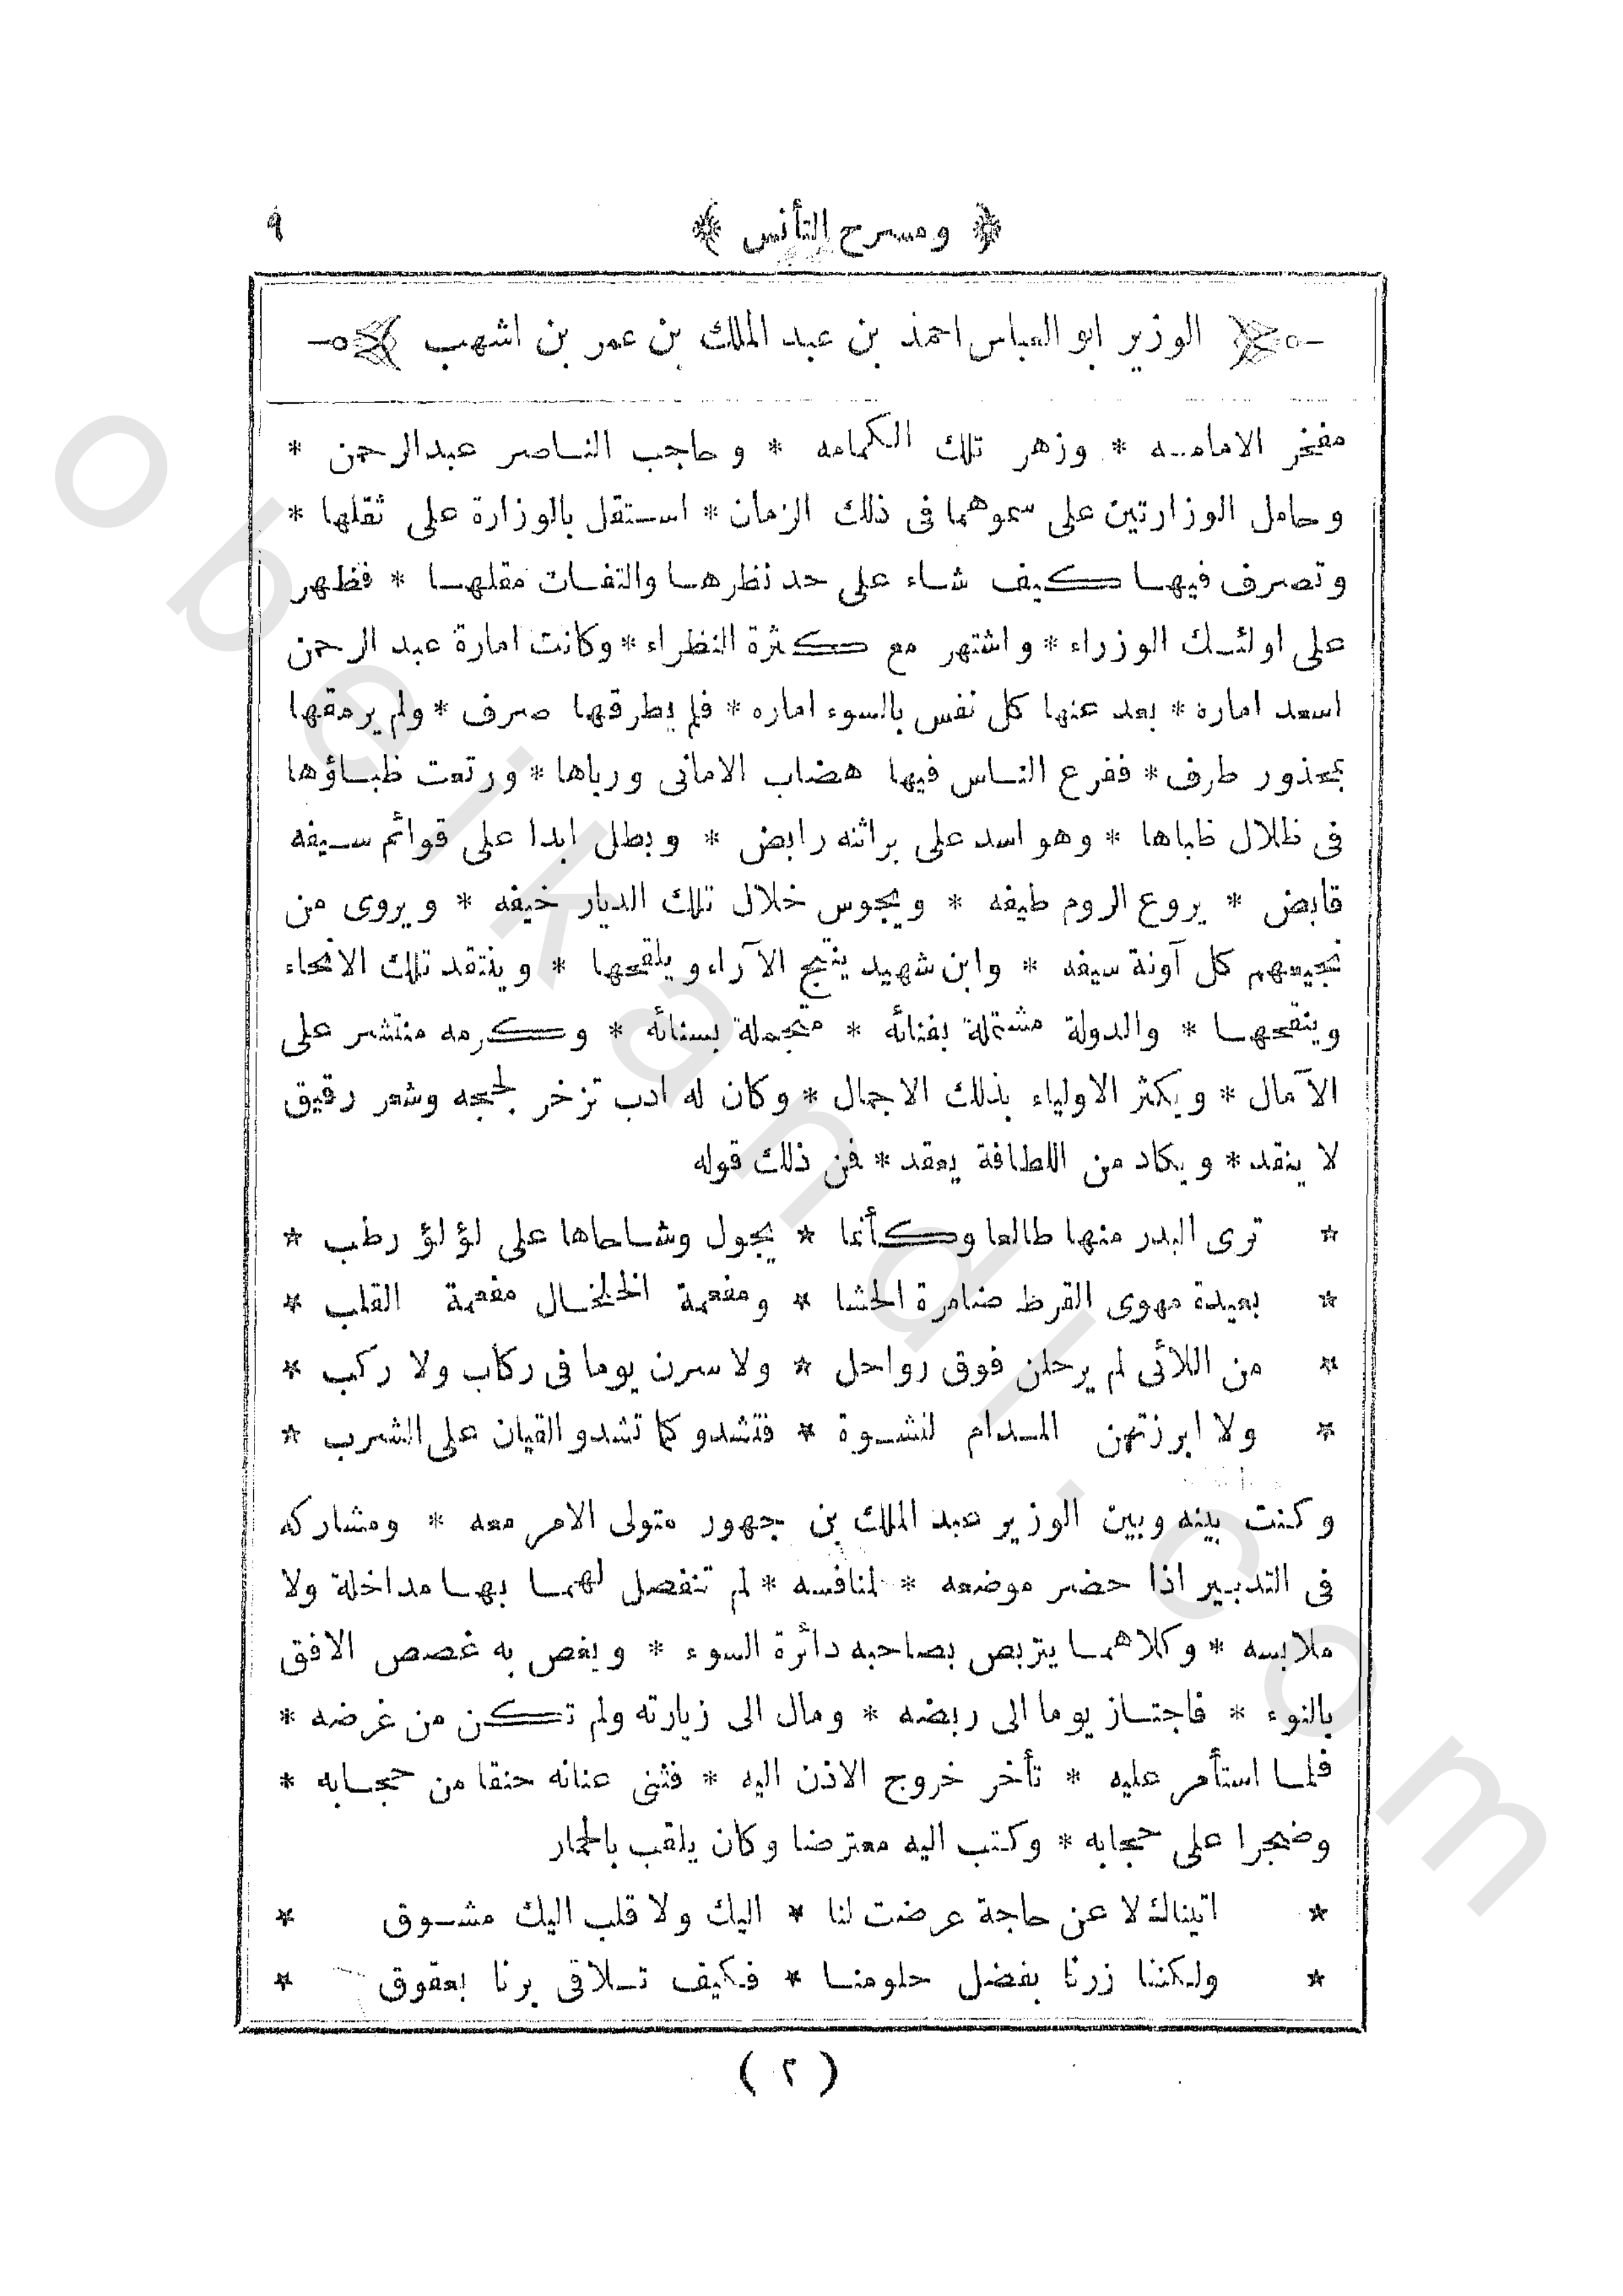 ﴿ ومسرح التأنس ﴾ ٩
الوزير ابو العباس احمد بن عبد الملك بن عمر بن اشهب
مفخر الامامـه * وزهر تلك الكمامه * وحاجب الناصر عبدالرحمن *
وحامل الوزارتين على سموهما فى ذلك الزمان * استقل بالوزارة على ثقلها *
وتصرف فيها كيف شاء على حد نظرها والتفات مقلها * فظهر
على اولئك الوزراء * واشتهر مع كثرة النظراء * وكانت امارة عبد الرحمن
اسعد اماره * بعد عنها كل نفس بالسوء اماره * فلم يطرقها صرف * ولم يرمقها
بمحذور طرف * ففرع الناس فيها هضاب الامانى ورباها * ورتعت ظباؤها
فى ظلال ظباها * وهو اسد على براثنه رابض * وبطل ابدا على قوائم سيفه
قابض * يروع الروم طيفه * ويجوس خلال تلك الديار خيفه * ويروى من
نجيعهم كل آونة سيفه * وابن شهيد ينتج الآراء ويلقحها * وينتقد تلك الانحاء
وينقحها * والدولة مشتملة بفنائه * متجملة بسنائه * وكرمه منتشر على
الآمال * ويكثر الاولياء بذلك الاجمال * وكان له ادب تزخر لججه وشعر رقيق
لا ينقد * ويكاد من اللطافة يعقد * فمن ذلك قوله
* ترى البدر منها طالعا وكأنما * يجول وشاحاها على لؤلؤ رطب *
* بعيدة مهوى القرط ضامرة الحشا * ومفعمة الخلخال مفعمة القلب *
* من اللائى لم يرحلن فوق رواحل * ولا سرن يوما فى ركاب ولا ركب *
* ولا ابرزتهن المدام لنشوة * فتشدو كما تشدو القيان على الشرب *
وكنت بينه وبين الوزير عبد الملك بن جهور متولى الامر معه * ومشاركه
فى التدبير اذا حضر موضعه * لمنافسه * لم تنفصل لهما بها مداخلة ولا
ملابسه * وكلاهما يتربص بصاحبه دائرة السوء * ويغص به غصص الافق
بالنوء * فاجتاز يوما الى ربضه * ومال الى زيارته ولم تكن من غرضه *
فلما استأمر عليه * تأخر خروج الاذن اليه * فثنى عنانه حنقا من حجابه *
وضجرا على حجابه * وكتب اليه معترضا وكان يلقب بالحمار
* اتيناك لا عن حاجة عرضت لنا * اليك ولا قلب اليك مشوق *
* ولكننا زرنا بفضل حلومنا * فكيف تلاقى برنا بعقوق *
( ٢ )
obeikandl.com